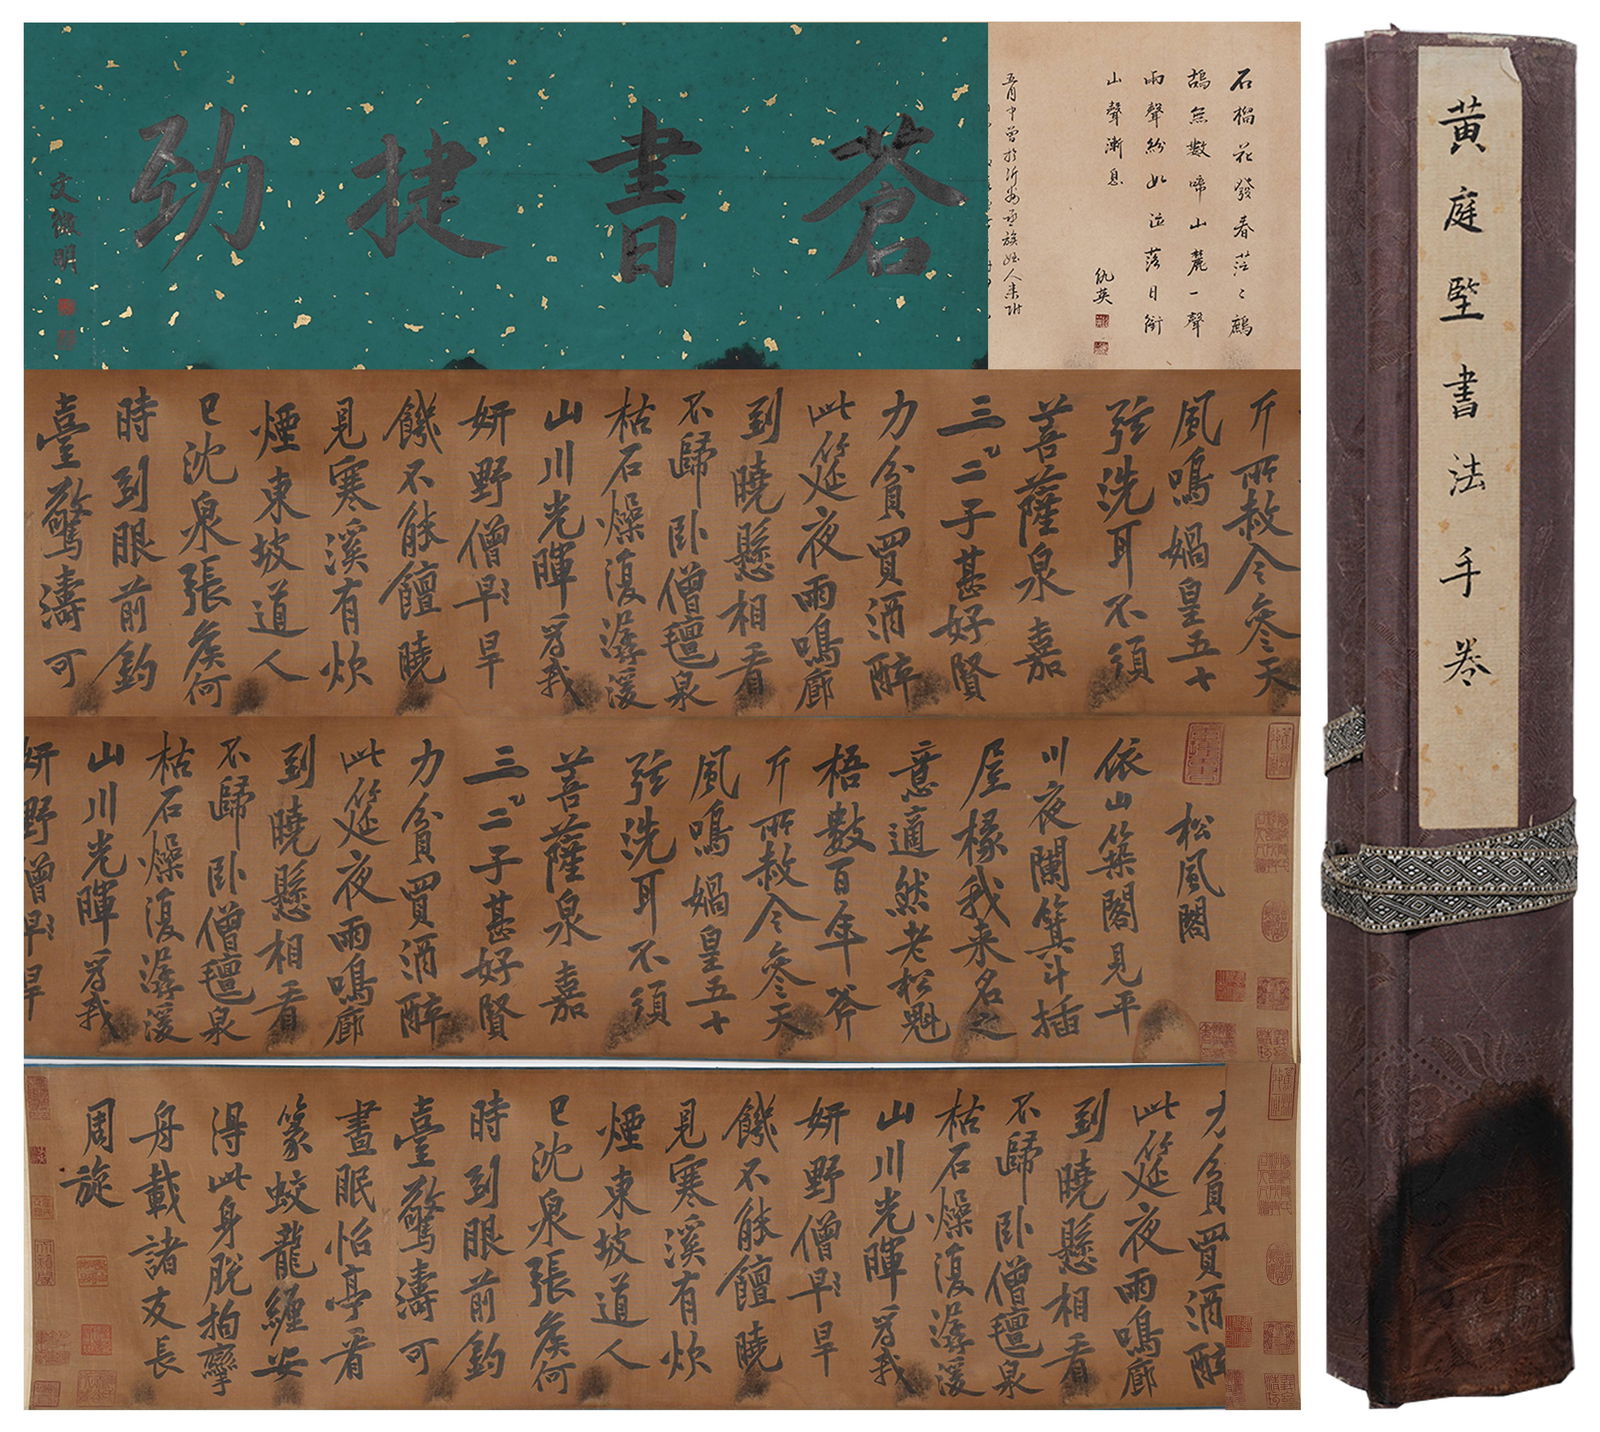 蒼書捷劲
文徵明
石榴花發春茫〻鷓
鴣無數啼山麓一聲
雨聲紛如泣落日銜
山聲漸息
仇英
五月中曾於
黃庭堅書法手卷
斤所赦今參天
風鳴媧皇五十
弦洗耳不須
菩薩泉嘉
三二子甚好賢
力貧買酒醉
此筵夜雨鳴廊
到曉懸相看
不歸卧僧氊泉
枯石燥復潺湲
山川光暉為我
妍野僧早〻旱
饑不能饘曉
見寒溪有炊
煙東坡道人
已沈泉張侯何
時到眼前釣
臺驚濤可
松風閣
依山築閣見平
川夜闌箕斗插
屋椽我来名之
意適然老松魁
梧數百年斧
斤所赦今參天
風鳴媧皇五十
弦洗耳不須
菩薩泉嘉
三二子甚好賢
力貧買酒醉
此筵夜雨鳴廊
到曉懸相看
不歸卧僧氊泉
枯石燥復潺湲
山川光暉為我
妍野僧早旱
力貧買酒醉
此筵夜雨鳴廊
到曉懸相看
不歸卧僧氊泉
枯石燥復潺湲
山川光暉為我
妍野僧早〻旱
饑不能饘曉
見寒溪有炊
煙東坡道人
已沈泉張侯何
時到眼前釣
臺驚濤可
晝眠怡亭看
篆蛟龍纏安
得此身脫拘攣
舟載諸友長
周旋